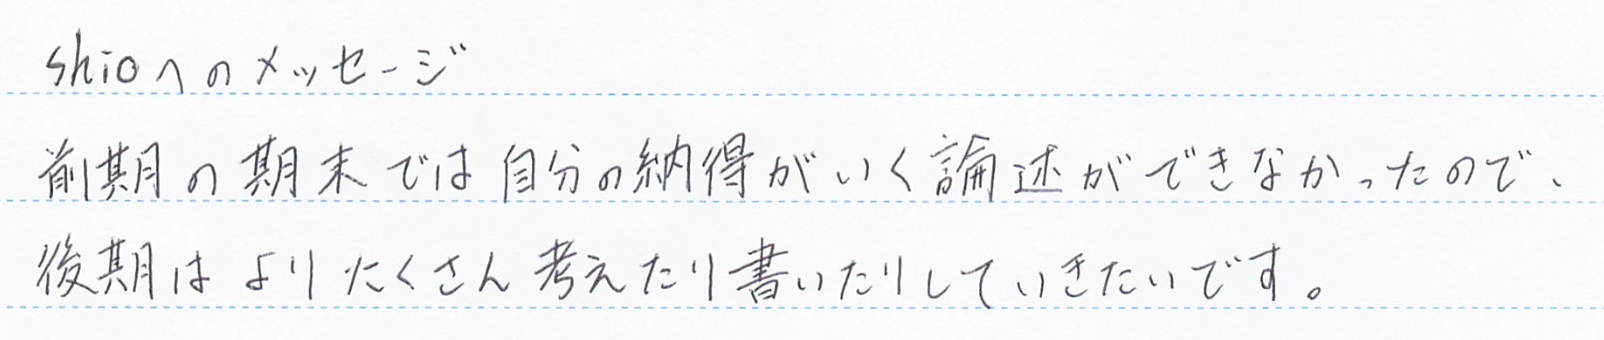 shioへのメッセージ
前期の期末では自分の納得がいく論述ができなかったので、
後期はよりたくさん考えたり書いたりしていきたいです。